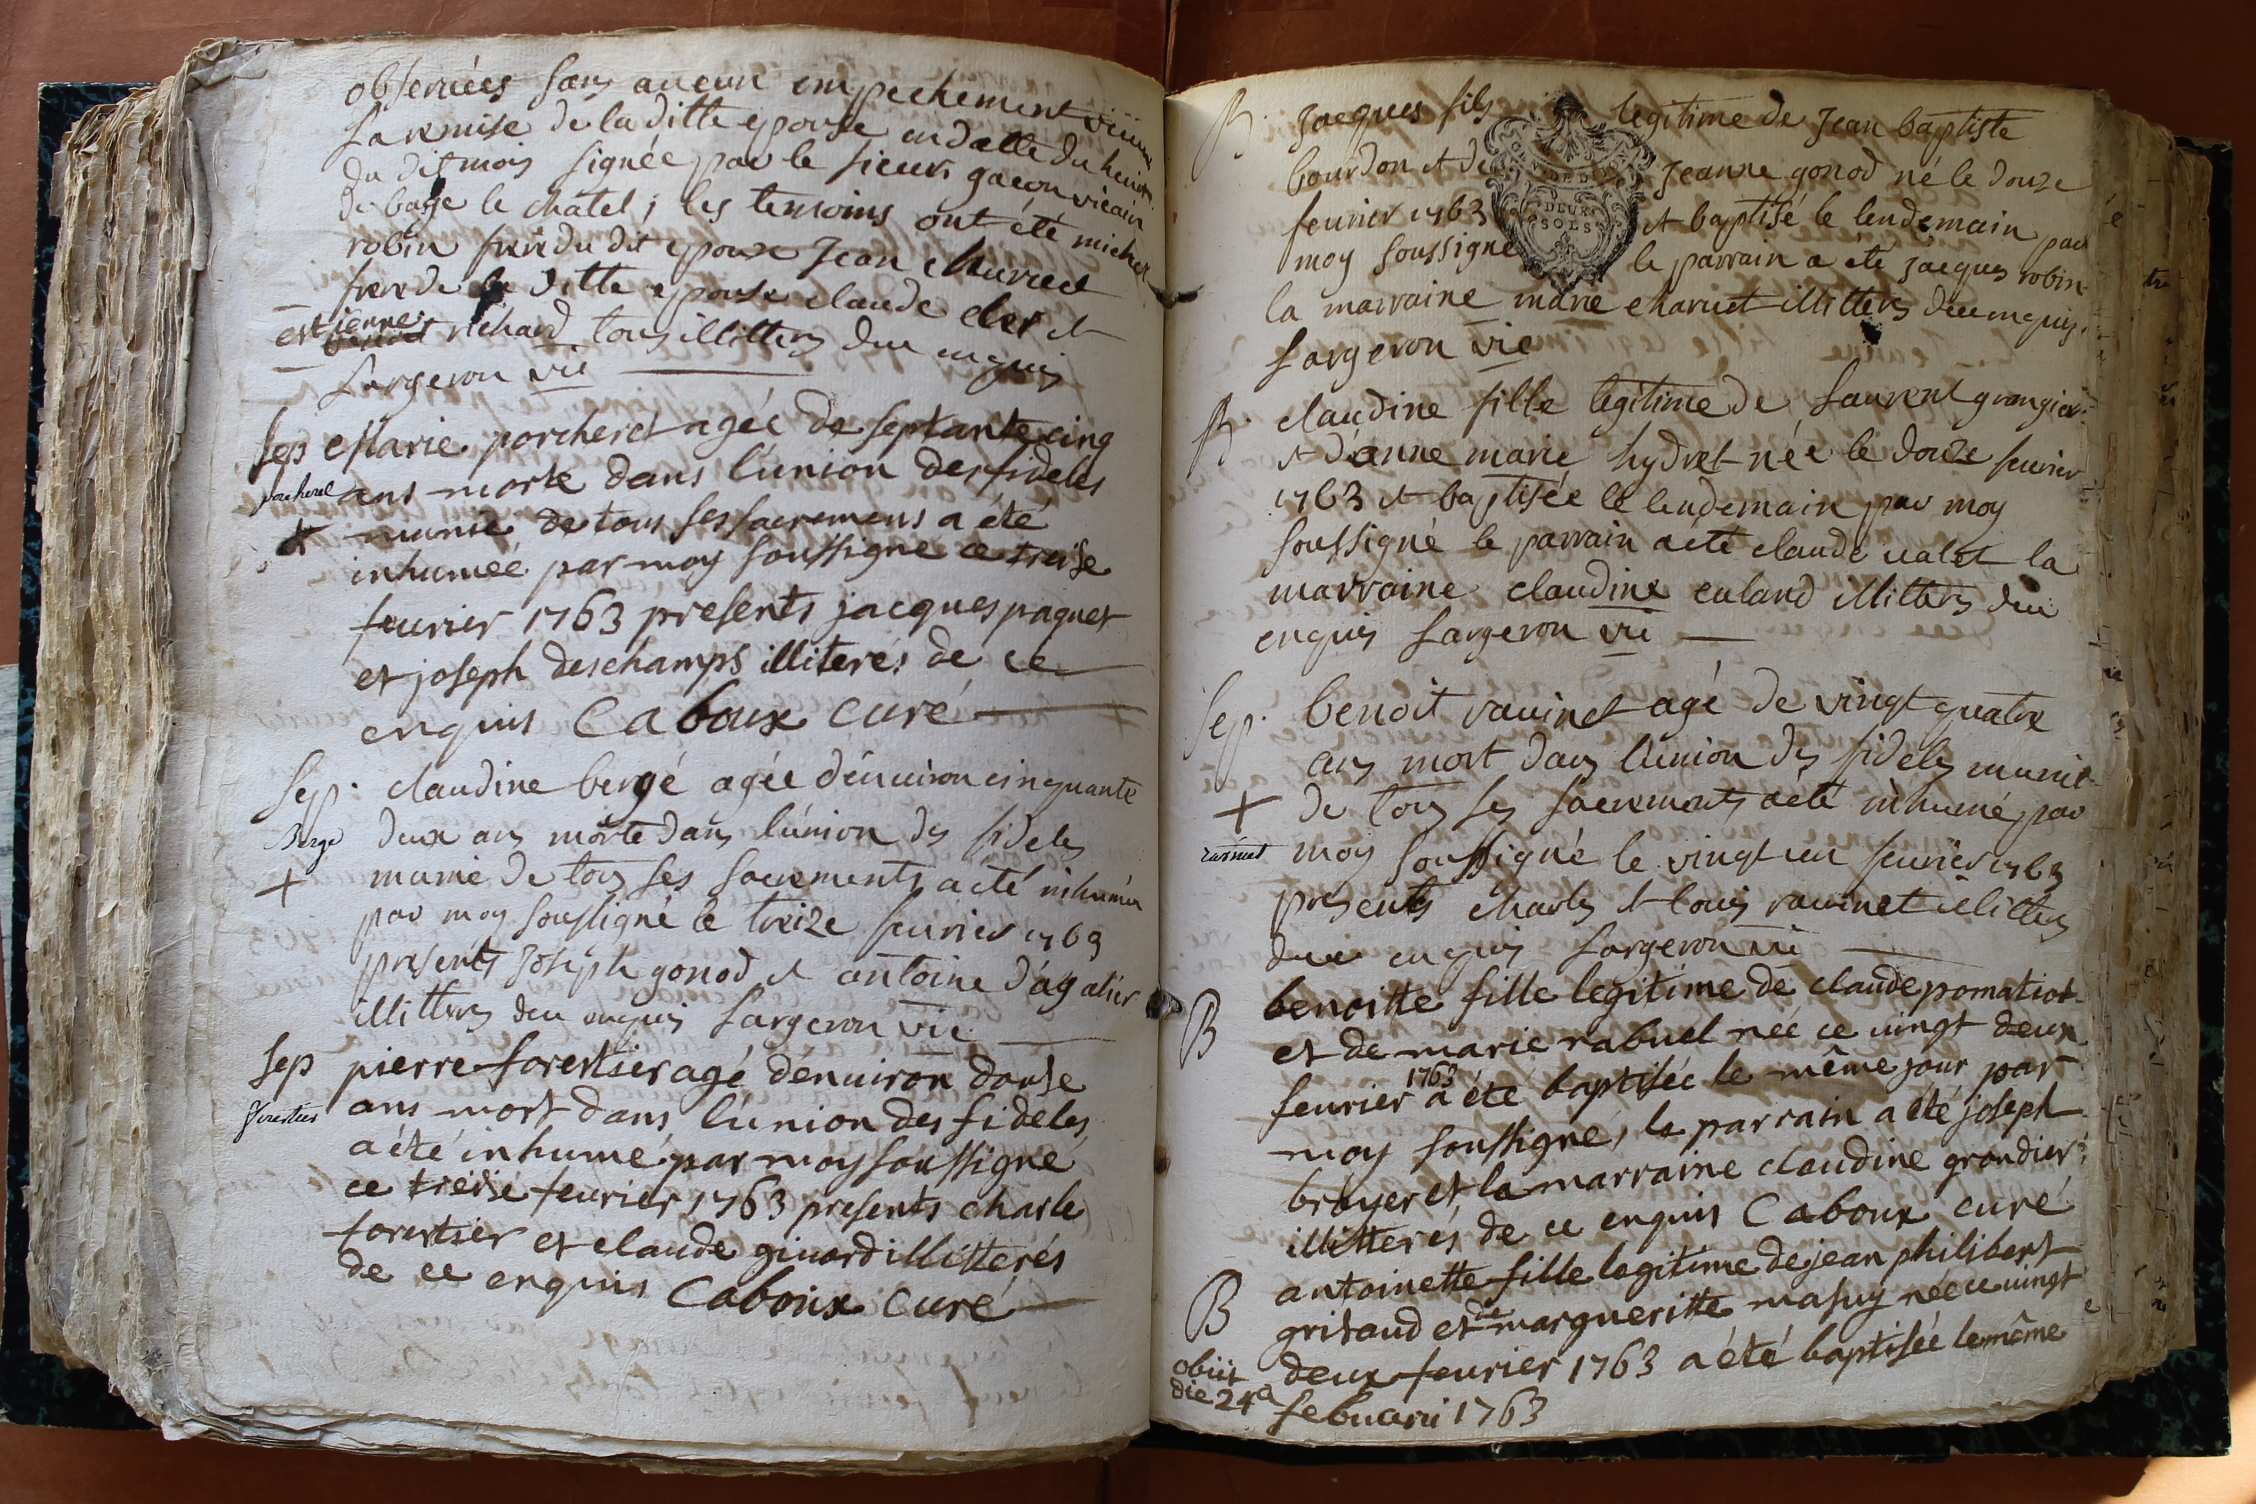 observées sans aucun empechement vüe
la remise de la ditte epouse en datte du huit
du dit mois signée par le sieur gacon vicair
de bagé le chatel ; les temoins ont été michel
robin frere du dit epoux Jean charvet
frere de la ditte epouse claude cler et
estienne richard tous illitters deu enquis
fargeron vic
Sep Marie porcheret agée de septante cinq
porcheret ans morte dans l'union des fideles
+ munie de tous ses sacremens a été
inhumée par moy soussigné ce treise
feurier 1763 presents jacques paquet
et joseph deschamps illiterés de ce
enquis Caboux curé
Sep. claudine bergé agée d'enuiron cinquante
Bergé deux ans morte dans l'union des fideles
+ munie de tous ses sacrements a été inhumée
par moy soussigné le treize feurier 1763
presents Joseph gonod et antoine d'agalier
illitters deu enquis fargeron vic
Sep pierre forestier agé d'enuiron douse
forestier ans mort dans l'union des fideles
a été inhumé par moy soussigné
ce treise feurier 1763 presents charle
forestier et claude giuord illitterés
de ce enquis Caboux curé
B. Jacques fils legitime de Jean baptiste
bourdon et de Jeanne gonod né le douze
feurier 1763 et baptisé le lendemain par
moy soussigné le parrain a été Jacques robin
la marraine marie charvet illitters deu enquis
fargeron vic
DEUX
SOLS
B. claudine fille legitime de Laurent grangier
et d'anne marie hydret née le douze feurier
1763 et baptisée le lendemain par moy
soussigné le parrain a été claude ualet la
marraine claudine euland illitters deu
enquis fargeron vic
Sep. benoit rauinet agé de vingt quatre
ans mort dans l'union des fideles munit
+ de tous ses sacrements a été inhumé par
rauinet moy soussigné le vingt un feurier 1763
presents charles et louis rauinet illitters
deu enquis fargeron vic
B benoitte fille legitime de claude pomatiot
et de marie rabuel née ce uingt deux
feurier 1763 a été baptisée le même jour par
moy soussigné, le parrain a été joseph
broyer et la marraine claudine grandier
illitterés de ce enquis Caboux curé
B antoinette fille legitime de jean philibert
grisaud et de margueritte masuy née ce uingt
deux feurier 1763 a été baptisée le même
obiit
die 24a februarii 1763